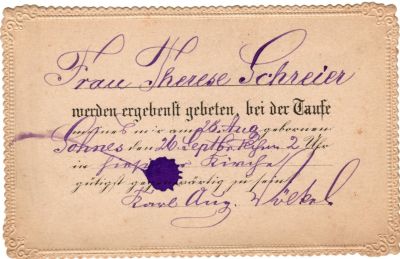 Frau Therese Schreier
werden ergebenst gebeten, bei der Taufe
meines mir am 28. Aug. gebornen
Sohnes den 26 Septbr 2 Uhr
in hiesiger Kirche
gütigst gegenwärtig zu sein
Karl Aug. Völkel